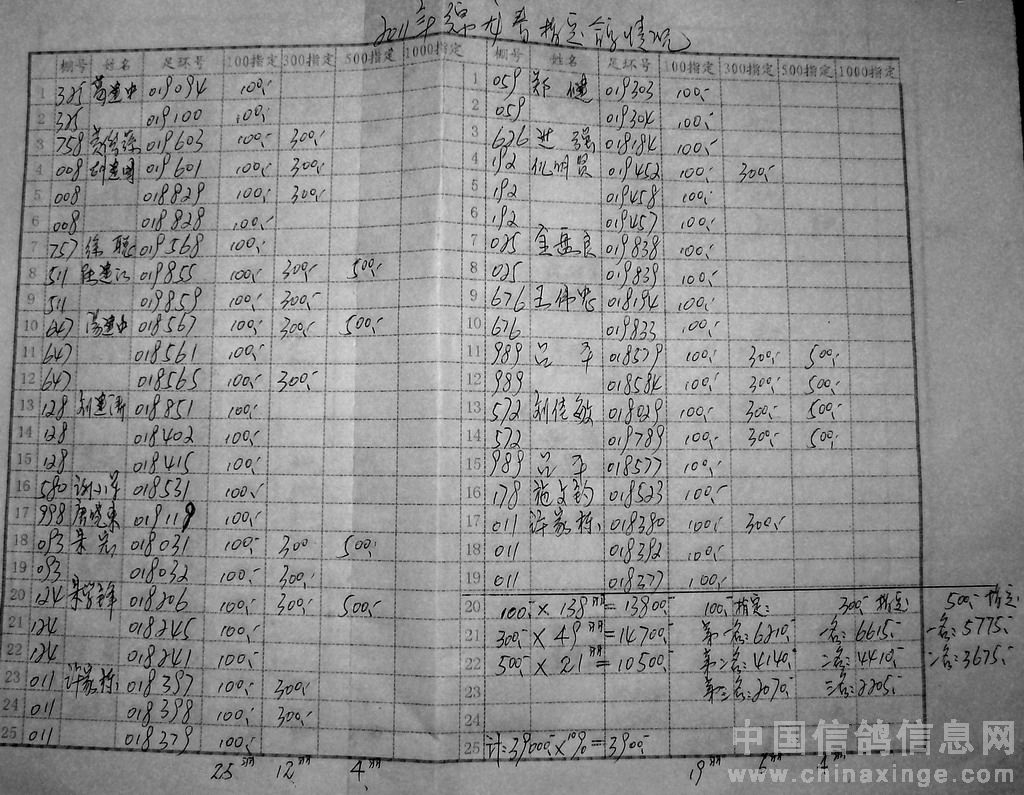 2011年 指定鸽情况
棚号 姓名 足环号 100指定 300指定 500指定 1000指定
1 325 葛建中 019094 100,-
2 325 019100 100,-
3 758 019603 100,- 300,-
4 008 胡建国 019601 100,- 300,-
5 008 018829 100,- 300,-
6 008 018828 100,-
7 757 徐聪 019568 100,-
8 511 陆建江 019855 100,- 300,- 500,-
9 511 019859 100,- 300,-
10 647 汤建中 018567 100,- 300,- 500,-
11 647 018561 100,-
12 647 018565 100,- 300,-
13 128 刘建 018851 100,-
14 128 018402 100,-
15 128 018415 100,-
16 580 018531 100,-
17 998 唐晓东 019119 100,-
18 093 朱 018031 100,- 300 500,-
19 093 018032 100,- 300,-
20 124 018206 100,- 300,- 500,-
21 124 018245 100,-
22 124 018241 100,-
23 011 许家栋 018397 100,- 300,-
24 011 018398 100,- 300,-
25 011 018379 100,-
25羽 12羽 4
棚号 姓名 足环号 100指定 300指定 500指定 1000指定
1 059 郑健 019303 100,-
2 059 019304 100,-
3 626 进强 018184 100,-
4 192 仇明贤 019452 100,- 300,-
5 192 019458 100,-
6 192 019457 100,-
7 025 金盘良 019838 100,-
8 025 019839 100,-
9 676 王伟忠 018194 100,-
10 676 019833 100,-
11 989 吕平 018579 100,- 300,- 500,-
12 989 018584 100,- 300,- 500,-
13 572 刘佳敏 018029 100,- 300,- 500,-
14 572 019789 100,- 300,- 500,-
15 989 吕平 018577 100,-
16 178 施文钧 018523 100,-
17 011 许家栋 018380 100,- 300,-
18 011 018392 100,-
19 011 018377 100,-
20 100,- × 138羽 = 13800,- 100,-指定: 300,-指定: 500,-指定:
21 300,- × 49羽 = 14700,- 第一名:6210,- 一名:6615,- 一名:5775,-
22 500,- × 21羽 = 10500,- 第二名:4140,- 二名:4410,- 二名:3675,-
23 第三名:2070,- 三名:2205,-
24
25 计:39000,-×10%=3900,-
19羽 6羽 4羽
中国信鸽信息网
www.chinaxinge.com